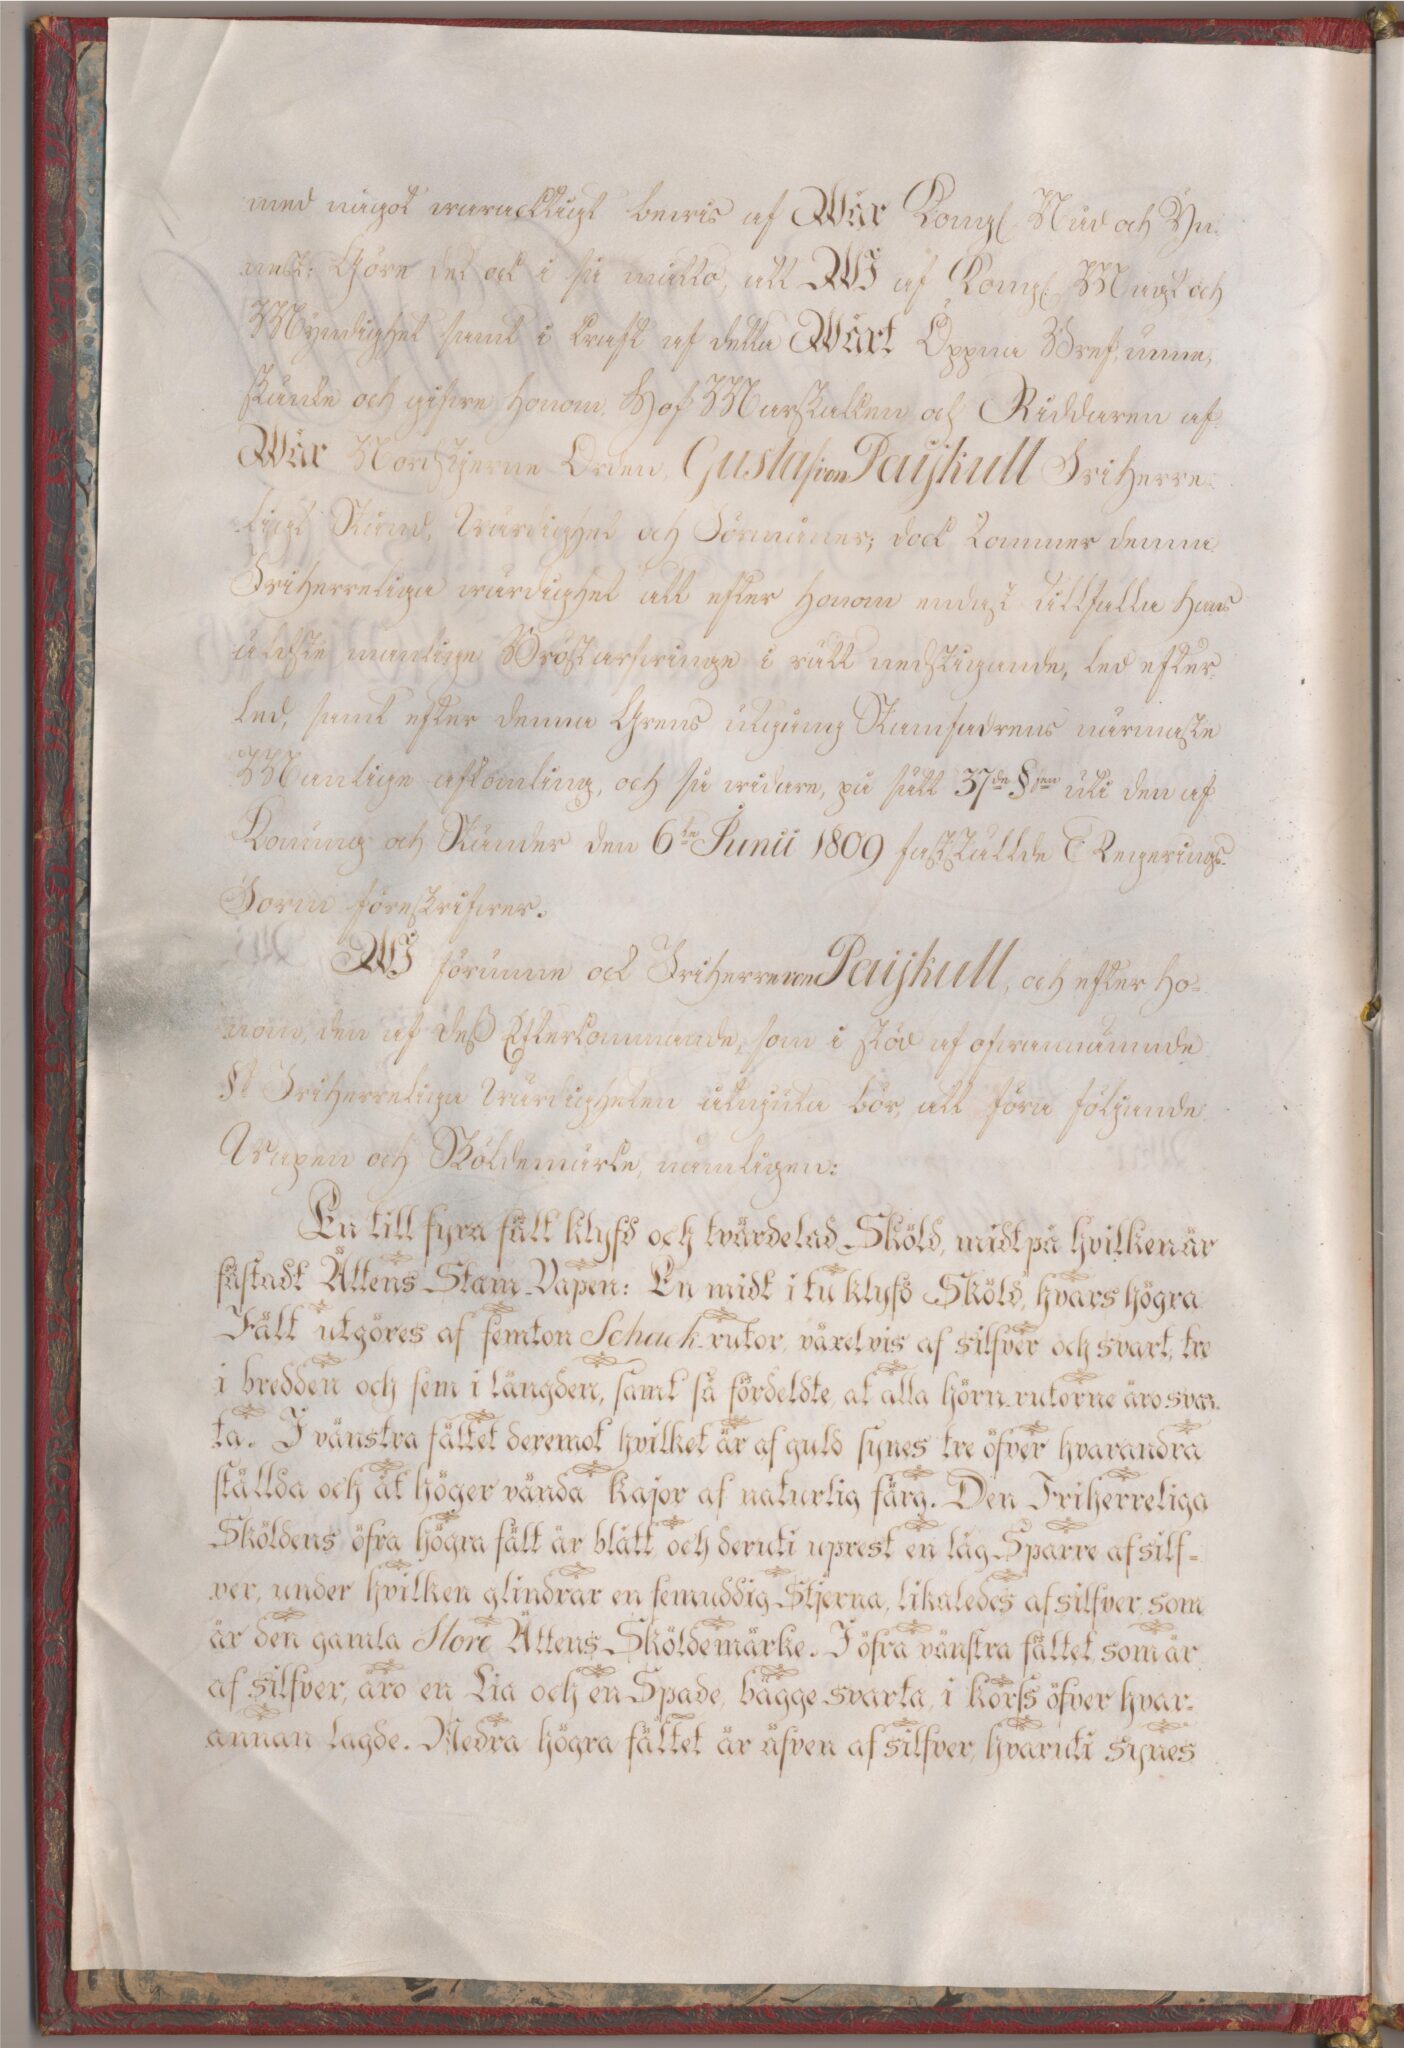 med något waracktigt bewis af Wår Kongl. Nåd och Yn-
nest: Göre det ock i så måtto, att WJ af Kongl. Magt och
Myndighet samt i kraft af detta Wårt Öppna Bref, unne,
skänke och gifwe honom, Hof Marskalken och Riddaren af
Wår Nordstjerne Orden, Gustaf von Paijkull FriHerre-
ligt Stånd, Wärdighet och Förmåner; dock kommer denna
FriHerreliga wärdighet att efter honom endast tillfalla hans
äldste manlige Bröstarfwinge i rätt nedstigande, led efter
led, samt efter denna Grens utgång Stamfadrens närmaste
Manlige afkomling, och så widare, på sätt 37de §jen uti den af
Konung och Ständer den 6te Junii 1809 fastställde Regerings-
Form föreskrifwer.
WJ förunne ock FriHerre von Paijkull, och efter ho-
nom, den af deß Efterkommande, som i stöd af ofwannämnde
§ FriHerreliga Wärdigheten åtnjuta bör, att föra följande
Wapen och Sköldemärke, nämligen:
En till fyra fält klyfd och tvärdelad Sköld, midt på hvilken är
fästadt Ättens Stam-Vapen: En midt i tu klyfd Sköld, hvars högra
Fält utgöres af femton Schack-rutor, växelvis af silfver och svart, tre
i bredden och fem i längden, samt så fördeldte, at alla hörn-rutorne äro svar-
ta. I vänstra fältet deremot hvilket är af guld synes tre öfver hvarandra
ställda och åt höger vända Kajor af naturlig färg. Den Friherreliga
Sköldens öfra högra fält är blått, och deruti uprest en låg Sparre af silf-
ver, under hvilken glindrar en femuddig Stjerna, likaledes af silfver, som
är den gamla Store Ättens Sköldemärke. I öfra vänstra fältet, som är
af silfver, äro en Lia och en Spade, bägge svarta, i korss öfver hvar-
annan lagde. Nedra högra fältet är äfven af silfver, hvaruti synes